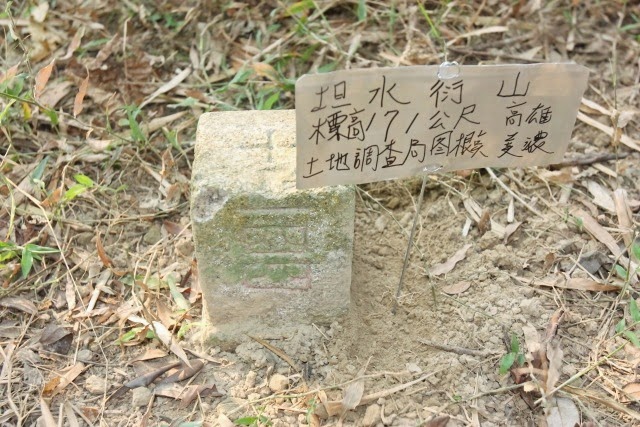 坦水衍山
標高171公尺 高雄
土地調查局圖根點 美濃